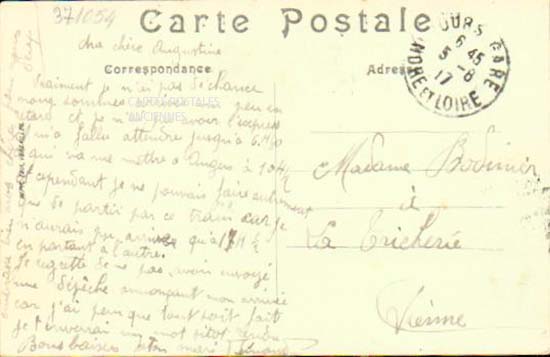 371054
Carte Postale
Ma chère Augustine
Correspondance
Adresse
CARTES POSTALES
ANCIENNES
Vraiment je n'ai pas de chance
nous sommes un peu en
retard et je avoir l'express
qui va me mettre à Angers à 10 H ½
et cependant je ne pouvais faire autrement
que de partir par ce train car je
n'aurais pu arriver qu'à 17 H ½
en partant à l'autre.
Je regrette de ne pas avoir envoyé
une dépêche annonçant mon arrivée
car j'ai peur que tout soit fait
je t'enverrai un mot sitôt rendu
Bons baisers ton mari
TOURS GARE
6 45
5 - 8
17
INDRE ET LOIRE
Madame Bodinier
à
La Tricherie
Vienne